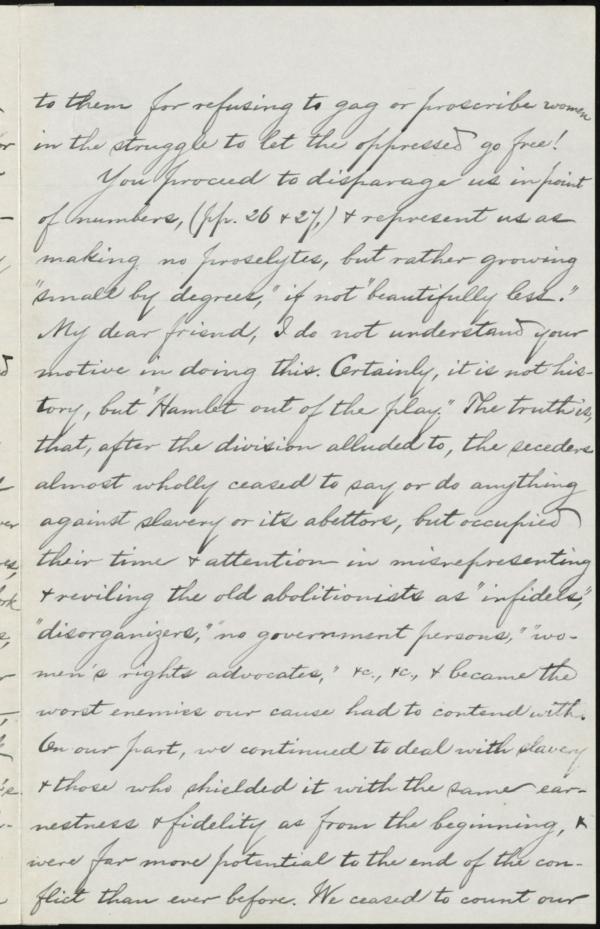 to them for refusing to gag or proscribe women
in the struggle to let the oppressed go free!
You proceed to disparage us in point
of numbers, (pp. 26 & 27,) & represent us as
making no proselytes, but rather growing
"small by degrees," if not "beautifully less."
My dear friend, I do not understand your
motive in doing this. Certainly, it is not his-
tory, but "Hamlet out of the play." The truth is,
that, after the division alluded to, the seceders
almost wholly ceased to say or do anything
against slavery or its abettors, but occupied
their time & attention in misrepresenting
& reviling the old abolitionists as "infidels,"
"disorganizers," "no government persons," "wo-
men's rights advocates," &c., &c., & became the
worst enemies our cause had to contend with.
On our part, we continued to deal with slavery
& those who shielded it with the same ear-
nestness & fidelity as from the beginning, &
were far more potential to the end of the con-
flict than ever before. We ceased to count our